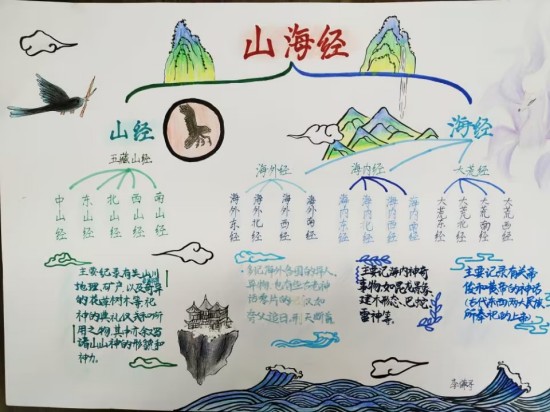 山海经
山经
海经
五藏山经
海外经
海内经
大荒经
中山经
东山经
北山经
西山经
南山经
海外东经
海外北经
海外西经
海外南经
海内东经
海内北经
海内西经
海内南经
大荒东经
大荒北经
大荒南经
大荒西经
主要纪录有关山川
地理,矿产,以及奇异
的花草树木等,记
神的典礼仪式和所
用之物,其中亦叙写
诸山山神的形貌和
神力。
海外各国的异人
异物,也包括
夸父追日,
主要记海内神奇
事物,如昆仑景象
建木形态、巴蛇
雷神等。
主要记录有关帝
俊和黄帝的神话
(古代东西两大民族
所奉祀的上帝)